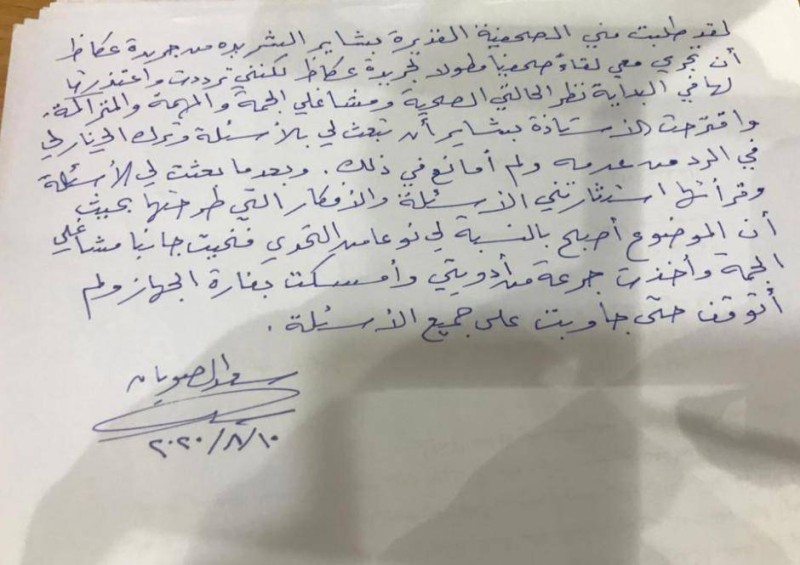 لقد طلبت مني الصحفية القديرة بشاير الشريده من جريدة عكاظ
أن تجري معي لقاءً صحفياً مطولاً لجريدة عكاظ لكنني ترددت واعتذرت
لها في البداية نظراً لحالتي الصحية ومشاغلي الجمة والمهمة والمتراكمة.
واقترحت الأستاذة بشاير أن تبعث لي بالأسئلة وترك الخيار لي
في الرد من عدمه ولم أمانع في ذلك. وبعدما بعثت لي الأسئلة
وقرأتها استثارتني الأسئلة والأفكار التي طرحتها بحيث
أن الموضوع أصبح بالنسبة لي نوعاً من التحدي فنحيت جانباً مشاغلي
الجمة وأخذت جرعة من أدويتي وأمسكت بفارة الجهاز ولم
أتوقف حتى جاوبت على جميع الأسئلة.
سعد الصويان
٢٠٢٠/٨/١٠